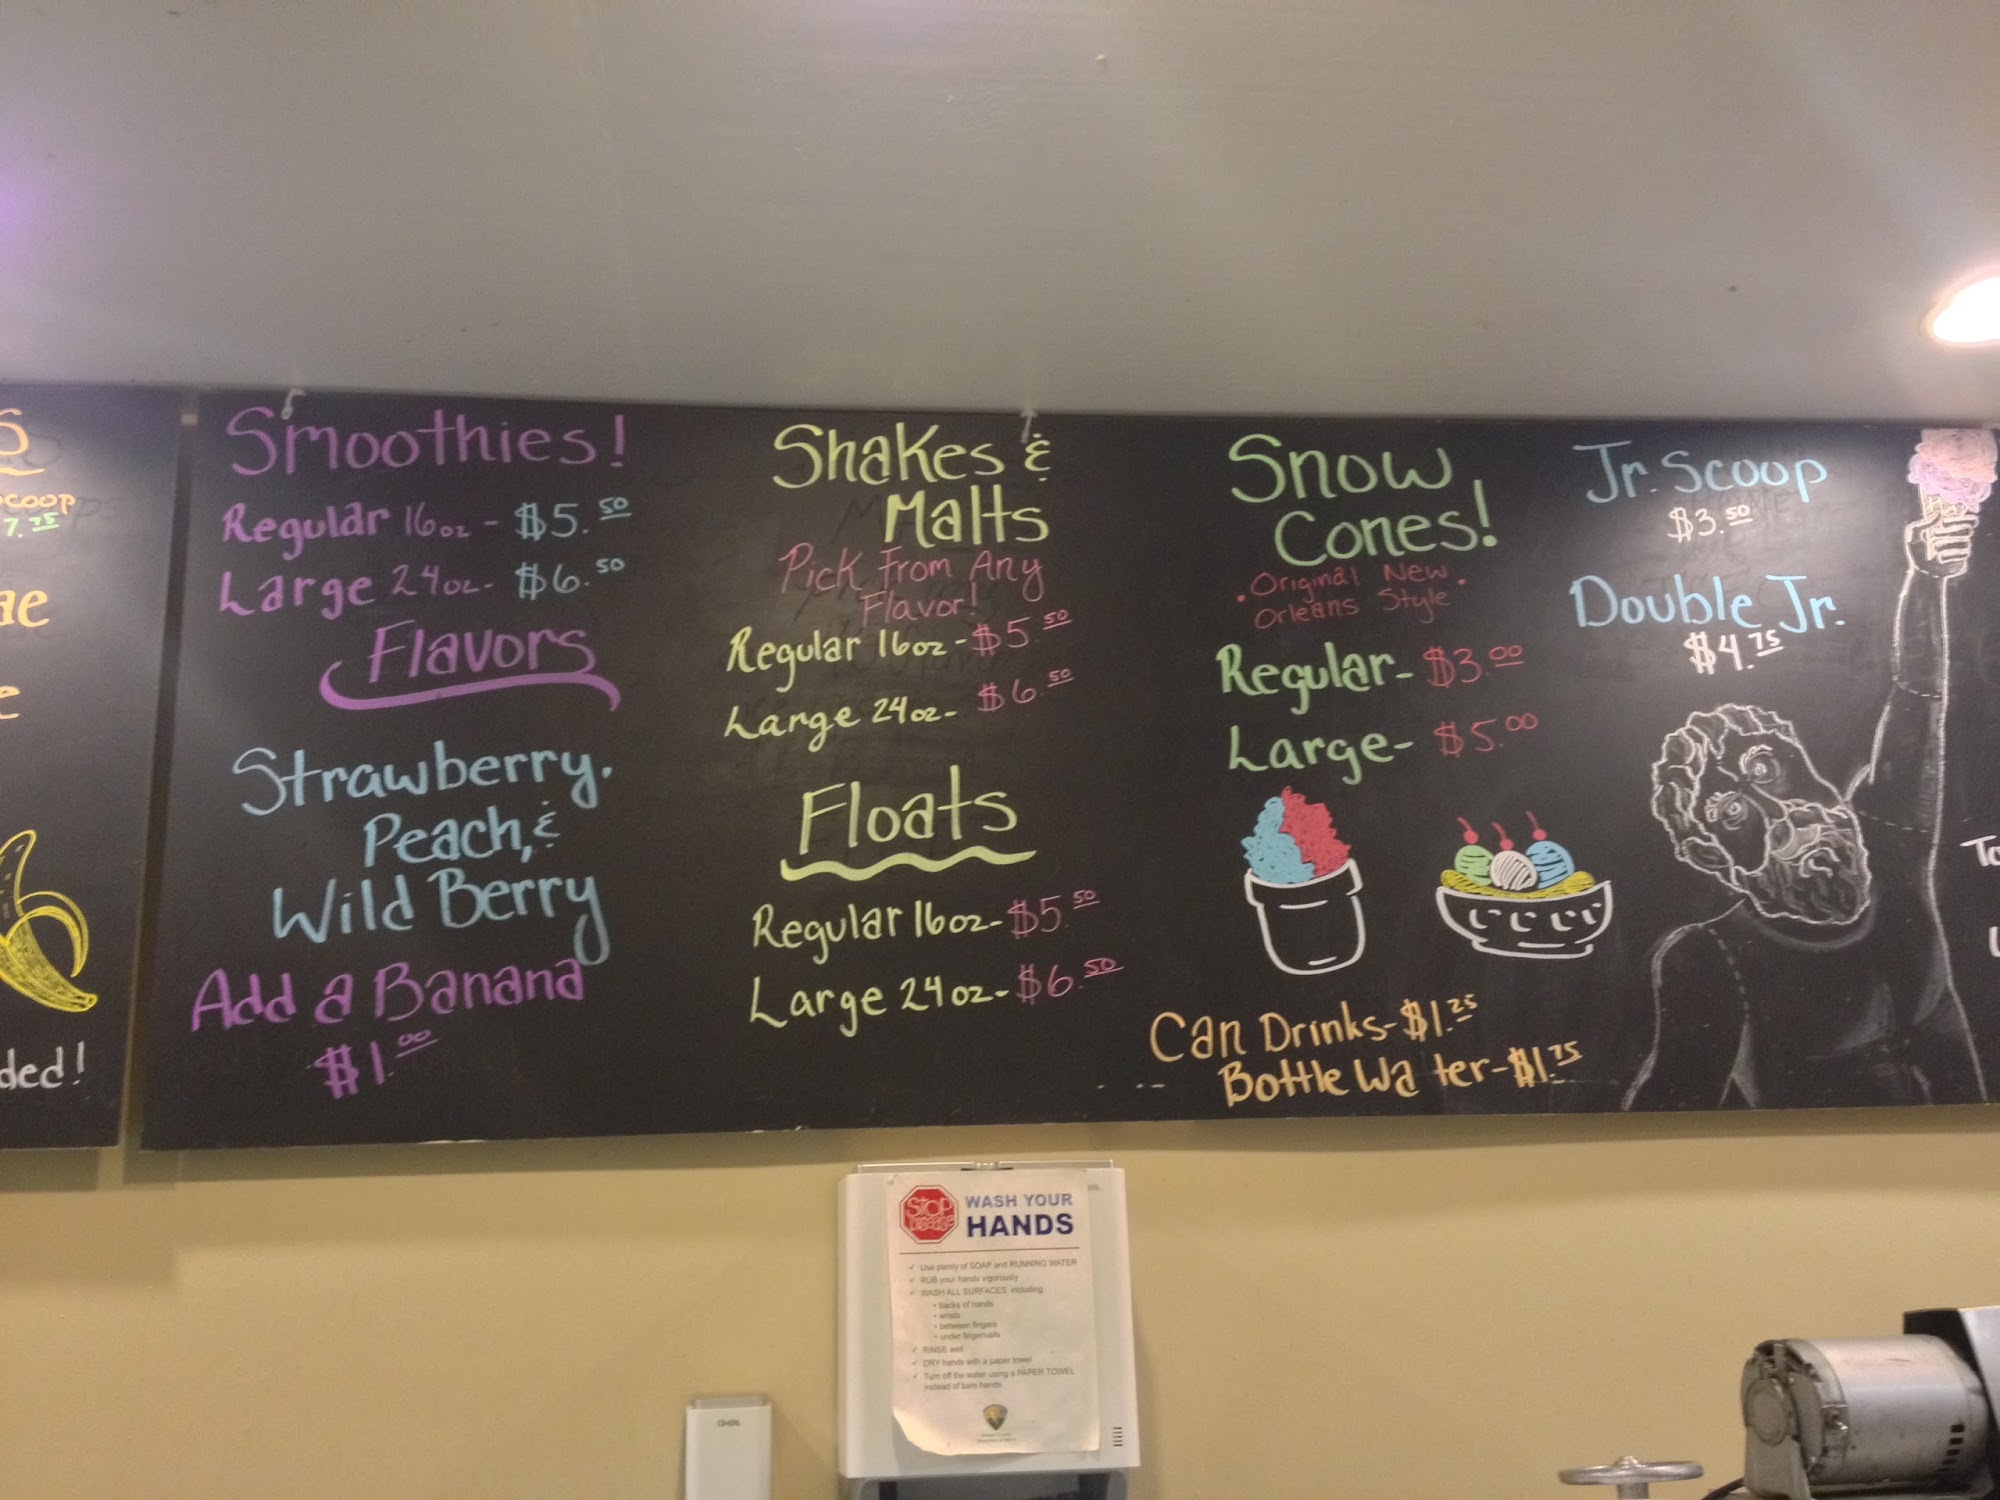 COOP
7.75
ded!
Smoothies!
Regular 16oz - $5.50
Large 24oz- $6.50
Flavors
Strawberry,
Peach, &
Wild Berry
Add a Banana
$1.00
Shakes &
Malts
Pick From Any
Flavor!
Regular 16oz-$5.50
Large 24oz- $6.50
Floats
Regular 16oz-$5.50
Large 24oz-$6.50
Snow
Cones!
• Original New •
Orleans Style
Regular- $3.00
Large- $5.00
Can Drinks-$1.25
Bottle Water-$1.75
Jr. Scoop
$3.50
Double Jr.
$4.75
To
STOP
DISEASE
WASH YOUR
HANDS
✓ Use plenty of SOAP and RUNNING WATER
✓ RUB your hands vigorously
✓ WASH ALL SURFACES, including:
• backs of hands
• wrists
• between fingers
• under fingernails
✓ RINSE well
✓ DRY hands with a paper towel
✓ Turn off the water using a PAPER TOWEL
instead of bare hands